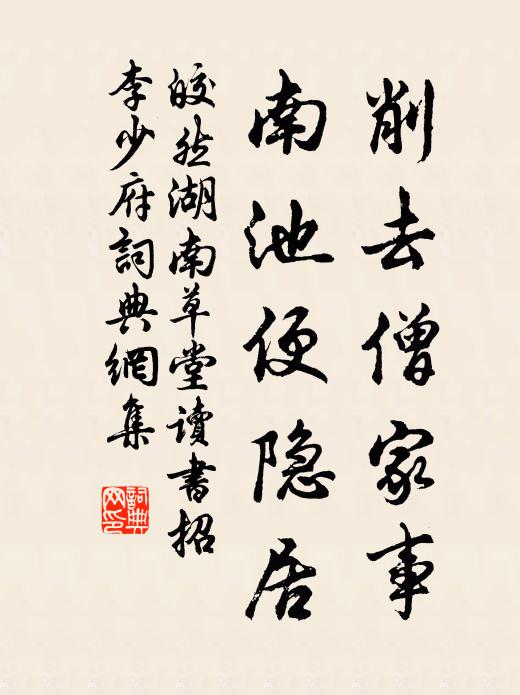 削去僧家事
南池便隐居
皎然湖南草堂讀書招
李少府詞典網集
詞典网印